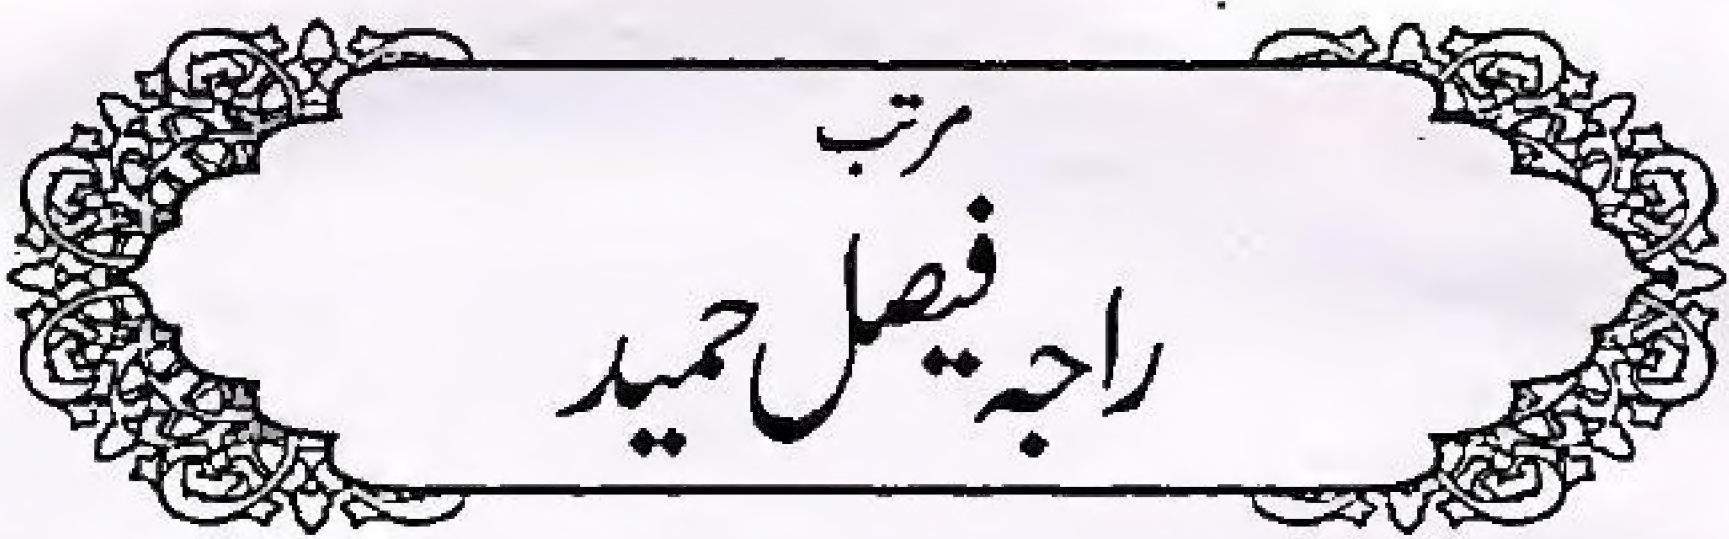 مرتب
راجہ فیصل حمید